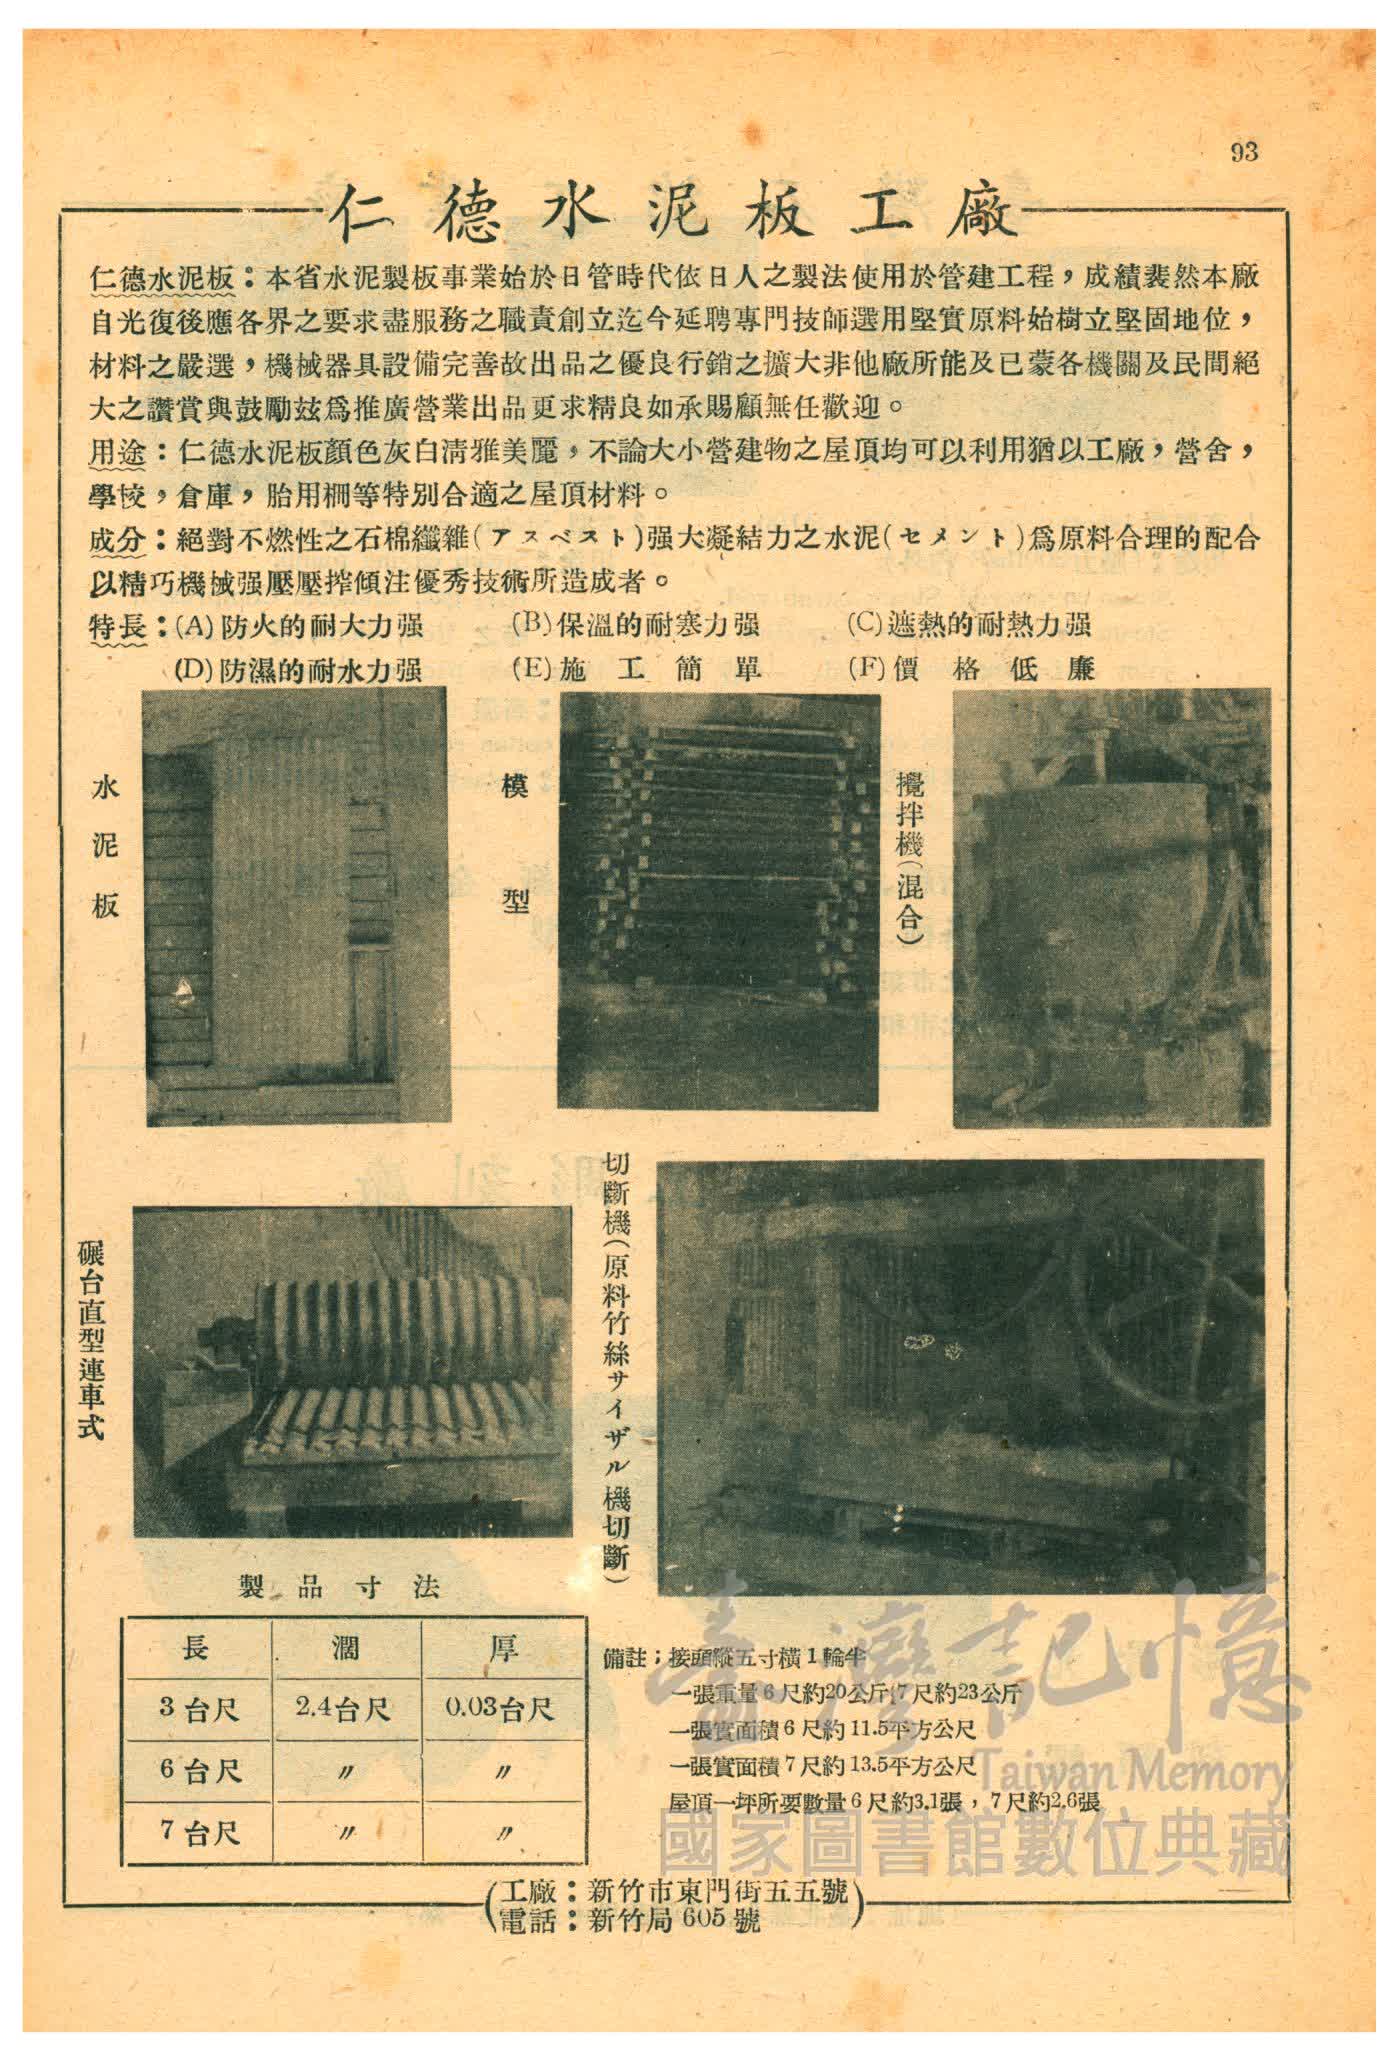 93
仁德水泥板工廠
仁德水泥板：本省水泥製板事業始於日管時代依日人之製法使用於管建工程，成績裴然本廠
自光復後應各界之要求盡服務之職責創立迄今延聘專門技師選用堅實原料始樹立堅固地位，
材料之嚴選，機械器具設備完善故出品之優良行銷之擴大非他廠所能及已蒙各機關及民間絕
大之讚賞與鼓勵玆爲推廣營業出品更求精良如承賜顧無任歡迎。
用途：仁德水泥板顏色灰白淸雅美麗，不論大小營建物之屋頂均可以利用猶以工廠，營舍，
學校，倉庫，胎用柵等特別合適之屋頂材料。
成分：絕對不燃性之石棉纖雜(アスベスト)强大凝結力之水泥(セメント)爲原料合理的配合
以精巧機械强壓壓搾傾注優秀技術所造成者。
特長：(A)防火的耐大力强 (B)保溫的耐寒力强 (C)遮熱的耐熱力强
(D)防濕的耐水力强 (E)施工簡單 (F)價格低廉
水泥板
模型
攪拌機(混合)
碾台直型連車式
切斷機(原料竹絲サイザル機切斷)
製品寸法
長 濶 厚
3台尺 2.4台尺 0.03台尺
6台尺 〃 〃
7台尺 〃 〃
備註；接頭縱五寸橫1輪半
一張重量6尺約20公斤，7尺約23公斤
一張實面積6尺約11.5平方公尺
一張實面積7尺約13.5平方公尺
屋頂一坪所要數量6尺約3.1張，7尺約2.6張
臺灣記憶
Taiwan Memory
國家圖書館數位典藏
(工廠：新竹市東門街五五號)
(電話：新竹局605號)